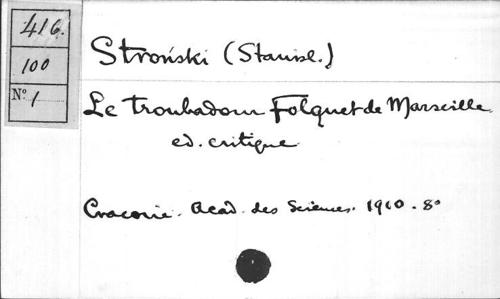 416.
100
Nº 1
Stroński (Stanisl.)
Le troubadour Folquet de Marseille
ed. critique
Cracovie. Acad. des Sciences. 1910. 8º